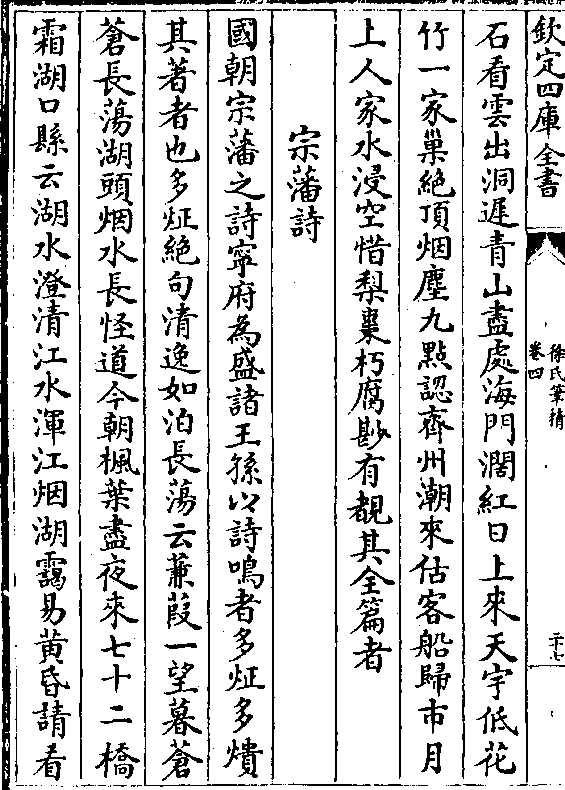 欽定四庫全書
徐氏筆精
卷四
二十七
石看雲出洞遲青山盡處海門濶紅日上來天宇低花
竹一家巢絶頂烟塵九點認齊州潮來估客船歸市月
上人家水浸空惜梨棗朽腐尠有覩其全篇者
宗藩詩
國朝宗藩之詩寧府為盛諸王孫以詩鳴者多炡多熿
其著者也多炡絶句清逸如泊長蕩云蒹葭一望暮蒼
蒼長蕩湖頭烟水長怪道今朝楓葉盡夜來七十二橋
霜湖口縣云湖水澄清江水渾江烟湖靄易黄昏請看